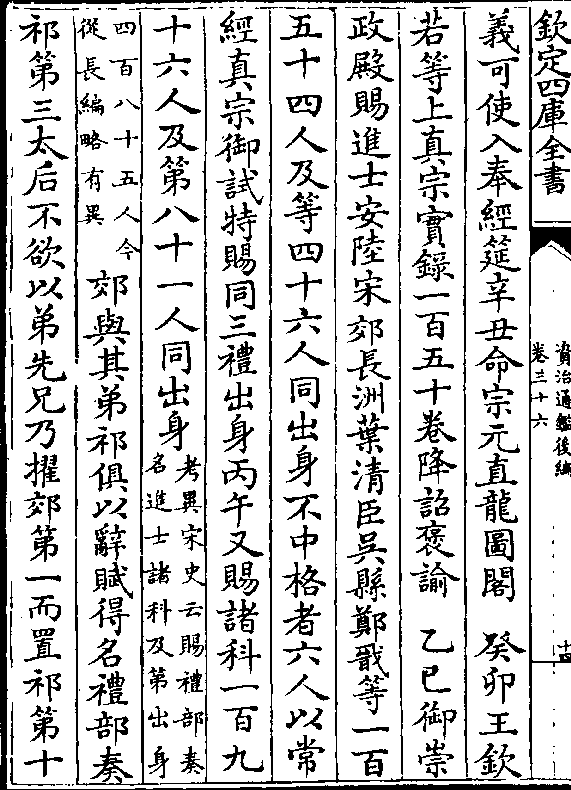 欽定四庫全書
資治通鑑後編
卷三十六
十四
義可使入奉經筵辛丑命宗元直龍圖閣　癸卯王欽
若等上真宗實錄一百五十卷降詔褒諭　乙巳御崇
政殿賜進士安陸宋郊長洲葉清臣吳縣鄭戩等一百
五十四人及等四十六人同出身不中格者六人以常
經真宗御試特賜同三禮出身丙午又賜諸科一百九
十六人及第八十一人同出身
考異宋史云賜禮部奏
名進士諸科及第出身
四百八十五人今
從長編略有異
郊與其弟祁俱以辭賦得名禮部奏
祁第三太后不欲以弟先兄乃擢郊第一而置祁第十